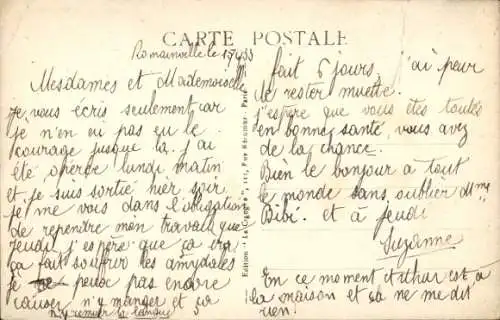 CARTE POSTALE
Romainville le 1533
Mesdames et Mademoiselle
Je vous écris seulement car
je n'en eu pas eu le
courage jusque la. j'ai
été opérée lundi matin
et je suis sortie hier soir
je me vois dans l'obligation
de reprendre mon travail que
jeudi j'espère que ça ira
ça fait souffrir les amydales
je peux pas encore
causer n'y manger et sa
n'y remuer la langue
fait 6 jours, j'ai peur
de rester muette.
j'espère que vous êtes toutes
en bonne santé, vous avez
de la chance.
Bien le bonjour a tout
le monde sans oublier Mme
Bibi. et a jeudi
Suzanne
En ce moment Arthur est a
la maison et sa ne me dit
rien!
Edition "La Cigogne", Rue Paris